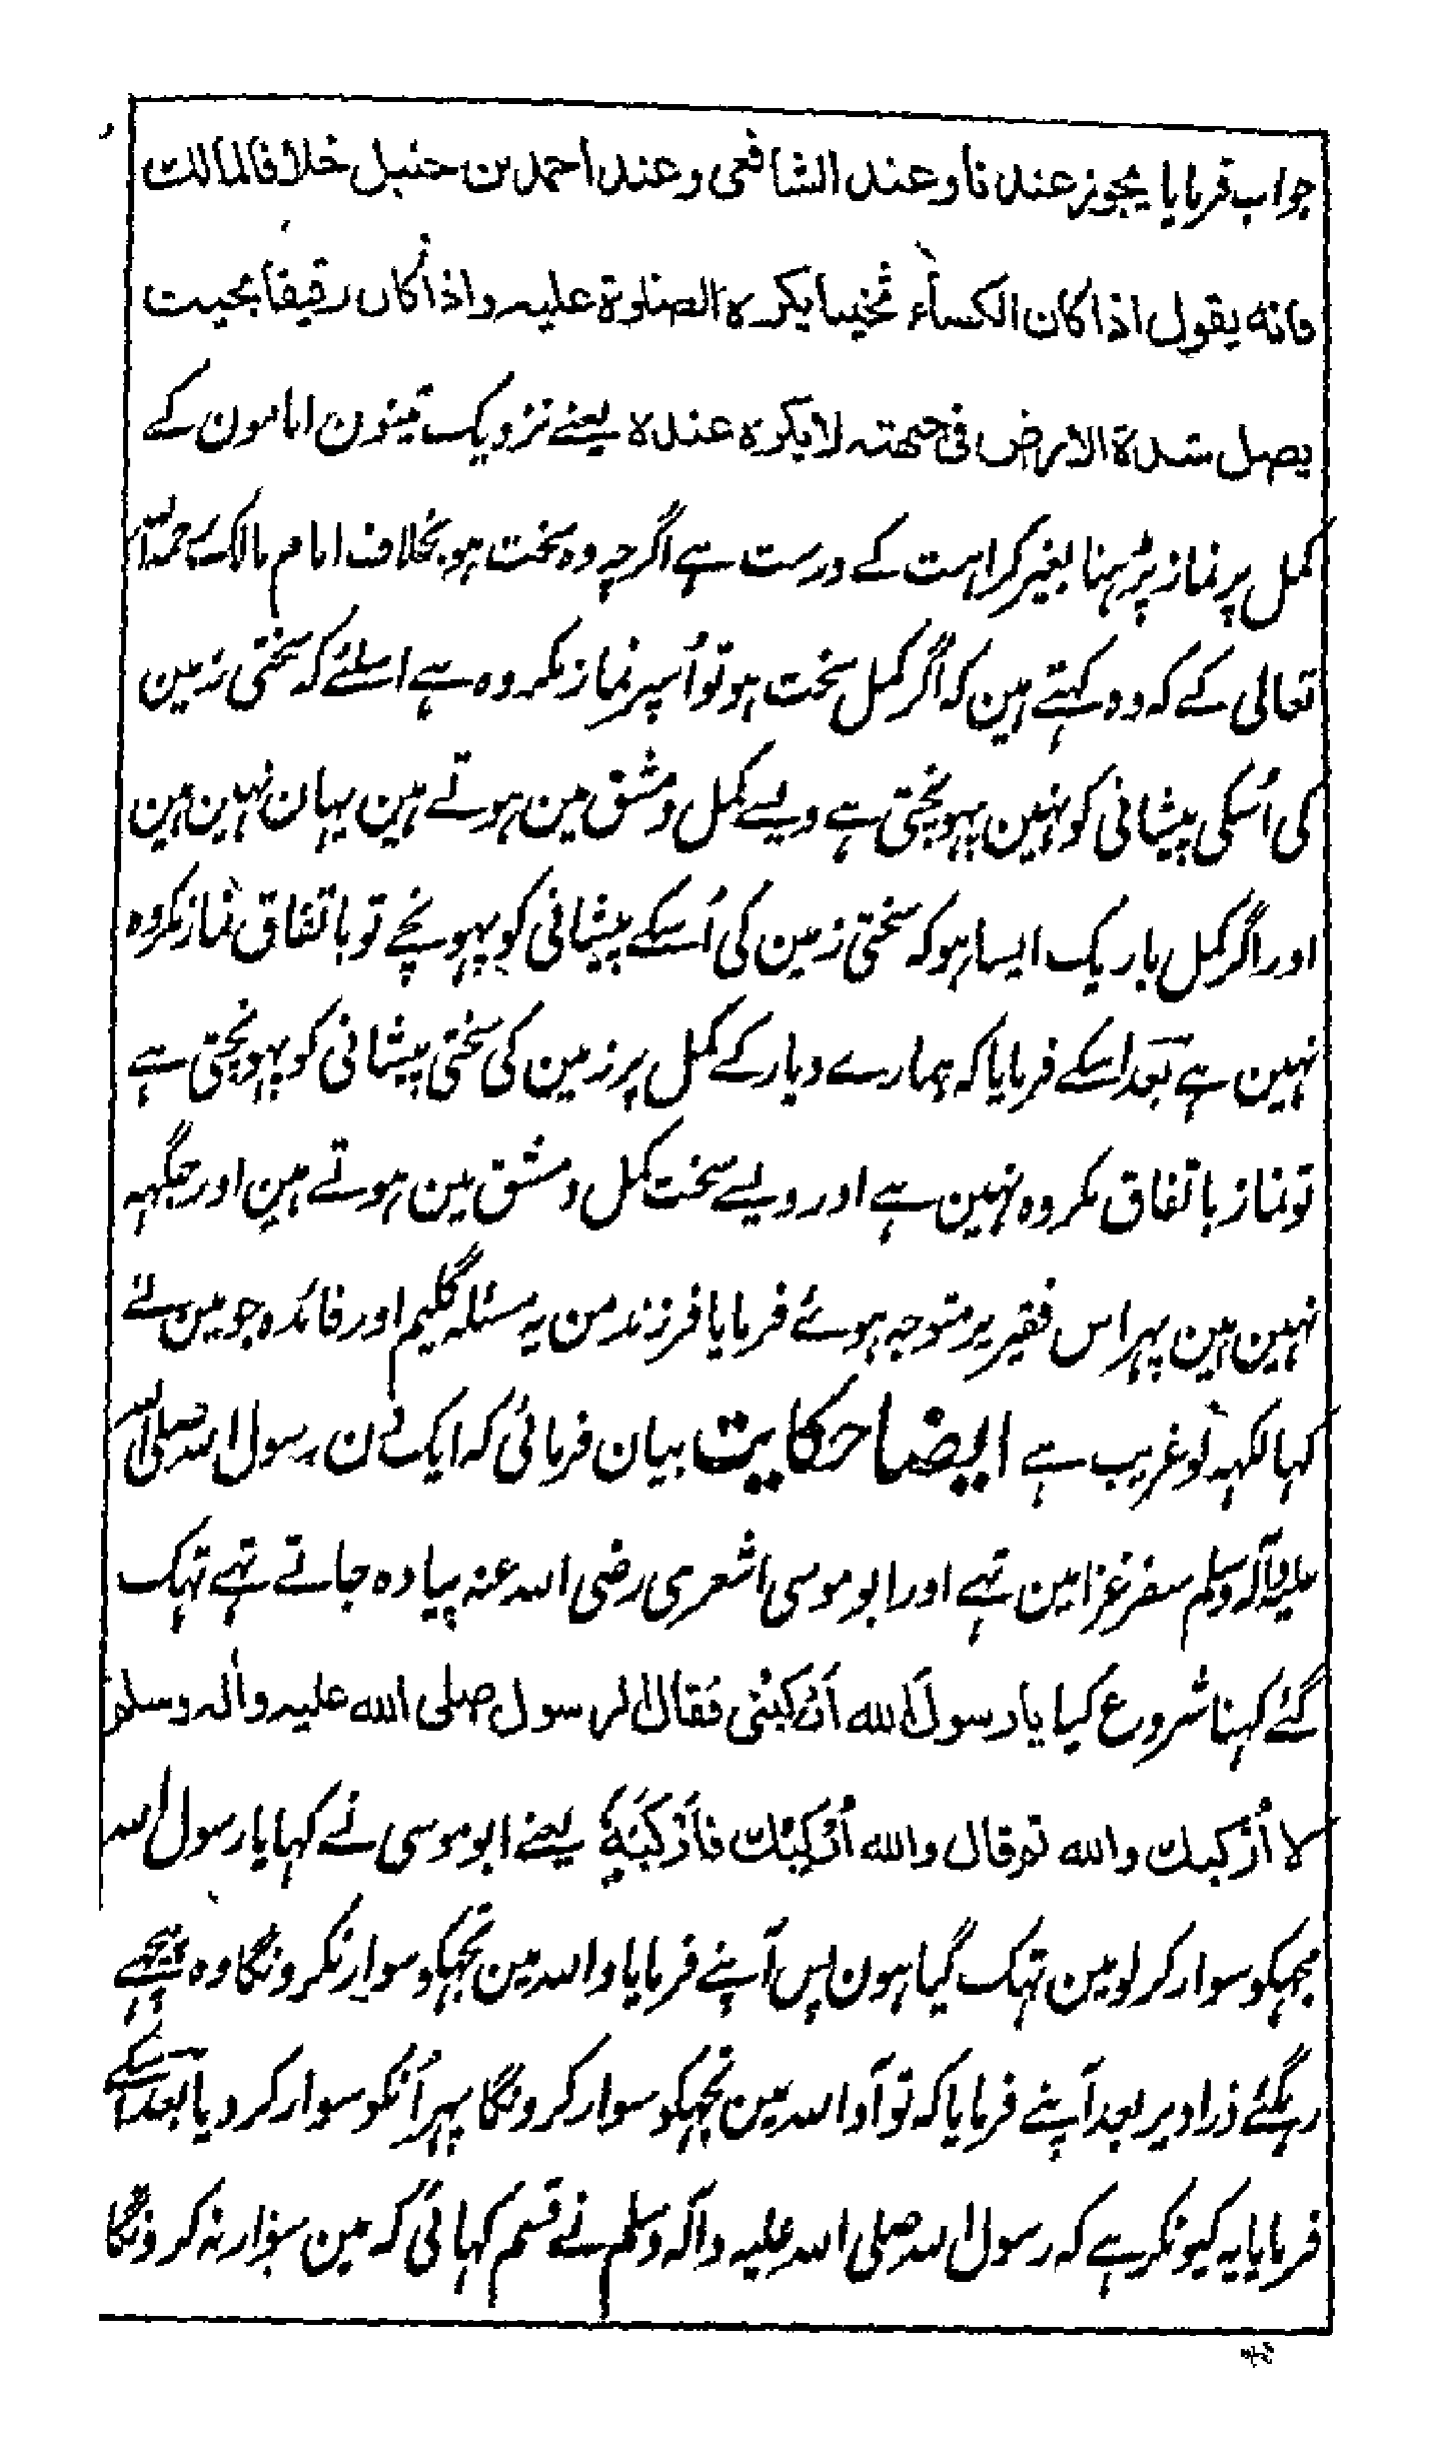 جواب فرمایا یجوز عندنا و عند الشافعی و عند احمد بن حنبل خلافا لمالك
فانه یقول اذا کان الکساء ثخینا یکرہ الصلوۃ علیه و اذا کان رقیقا بحیث
یصل شدۃ الارض فی جبهته لا یکرہ عندہ یعنے نزدیک تینون امامون کے
کمل پر نماز پڑہنا بغیر کراہت کے درست ہے اگرچہ وہ سخت ہو بخلاف امام مالک رحمہ اللہ
تعالی کے کہ وہ کہتے ہین کہ اگر کمل سخت ہو تو اُسپر نماز مکروہ ہے اسلئے کہ سختی زمین
کی اُسکی پیشانی کو نہین پہونچتی ہے ویسے کمل دمشق مین ہوتے ہین یہان نہین ہین
اور اگر کمل باریک ایسا ہو کہ سختی زمین کی اُسکے پیشانی کو پہونچے تو باتفاق نماز مکروہ
نہین ہے بعد اسکے فرمایا کہ ہمارے دیار کے کمل پر زمین کی سختی پیشانی کو پہونچتی ہے
تو نماز باتفاق مکروہ نہین ہے اور ویسے سخت کمل دمشق مین ہوتے ہین اور جگہہ
نہین ہین پہر اس فقیر پر متوجہ ہوئے فرمایا فرزند من یہ مسئلہ گلیم اور فائدہ جو مین نے
کہا لکہہ لو غریب ہے ایضا حکایت بیان فرمائی کہ ایک دن رسول اللہ صلی اللہ
علیہ وآلہ وسلم سفر غزا مین تہے اور ابو موسی اشعری رضی اللہ عنہ پیادہ جاتے تہے تہک
گئے کہنا شروع کیا یا رسول الله اَرْکبْنی فقال الرسول صلی الله علیه واٰله وسلم
لا اُرْکبك والله ثم قال والله اُرْکِبُك فاَرْکَبَهٗ یعنے ابو موسی نے کہا یا رسول اللہ
مجہکو سوار کر لو مین تہک گیا ہون پس آپنے فرمایا واللہ مین تجہکو سوار نکرونگا وہ پیچہے
رہگئے ذرا دیر بعد آپنے فرمایا کہ تو آ واللہ مین تجہکو سوار کرونگا پہر اُنکو سوار کر دیا بعد اسکے
فرمایا یہ کیونکر ہے کہ رسول اللہ صلی اللہ علیہ وآلہ وسلم نے قسم کہائی کہ مین سوار نہ کرونگا